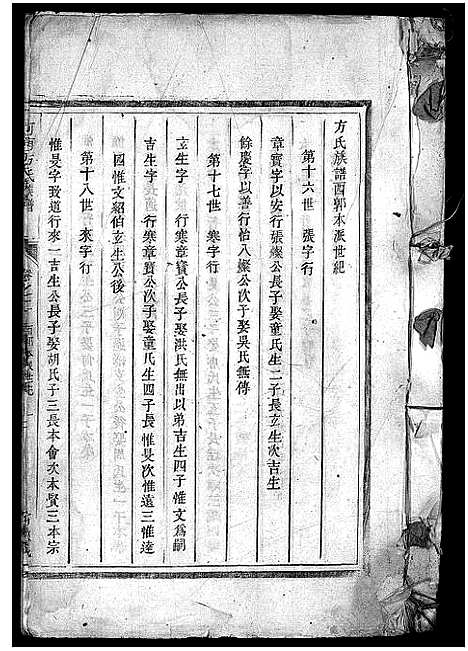 方氏族譜西郭本派世紀
第十六世 張字行
章寶字以安行張燦公長子娶童氏生二子長玄生次吉生
餘慶字以善行怡八燦公次子娶吳氏無傳
第十七世 寒字行
玄生字 行寒章寶公長子娶洪氏無出以弟吉生四子惟文為嗣
吉生字 行寒章寶公次子娶童氏生四子長惟旻次惟遠三惟達
國惟文紹伯玄生公後
第十八世 來字行
惟旻字致道行來一吉生公長子娶胡氏子三長本會次本賢三本宗